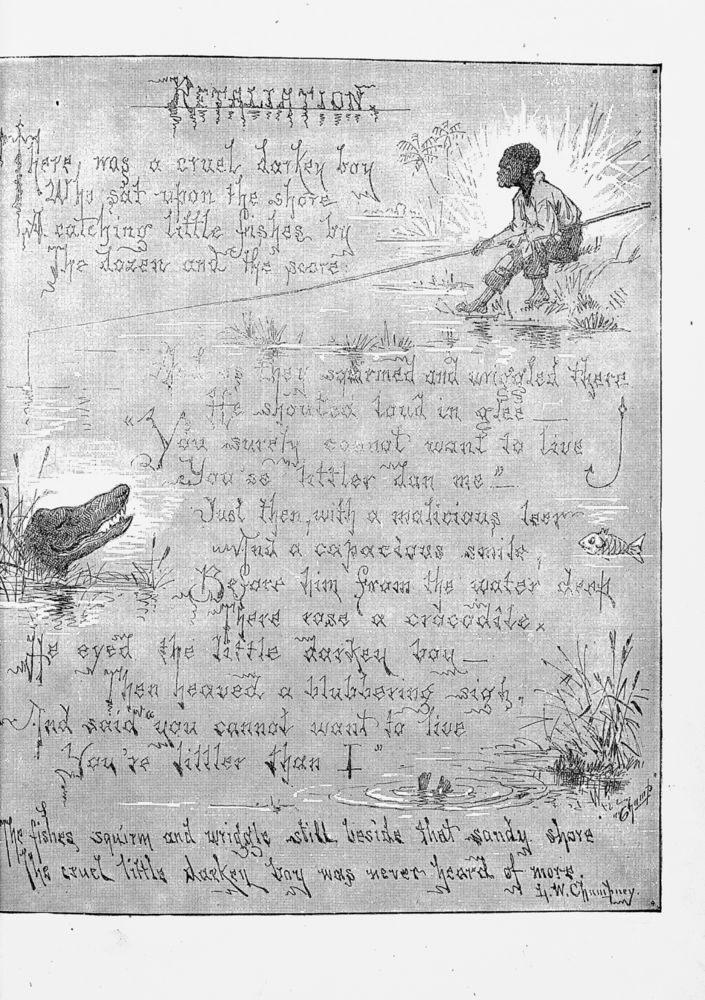 RETALIATION.
There was a cruel darkey boy
Who sat upon the shore
A catching little fishes by
The dozen and the score.
And as they squirmed and wriggled there
He shouted loud in glee—
"You surely cannot want to live
You'se littler dan me."—
Just then, with a malicious leer
And a capacious smile,
Before him from the water deep
There rose a crocodile.
He eyed the little darkey boy—
Then heaved a blubbering sigh,
And said "you cannot want to live
You're littler than I"
"Champ"
The fishes squirm and wriggle still beside that sandy shore
The cruel little darkey boy was never heard of more.
J. W. Champney.